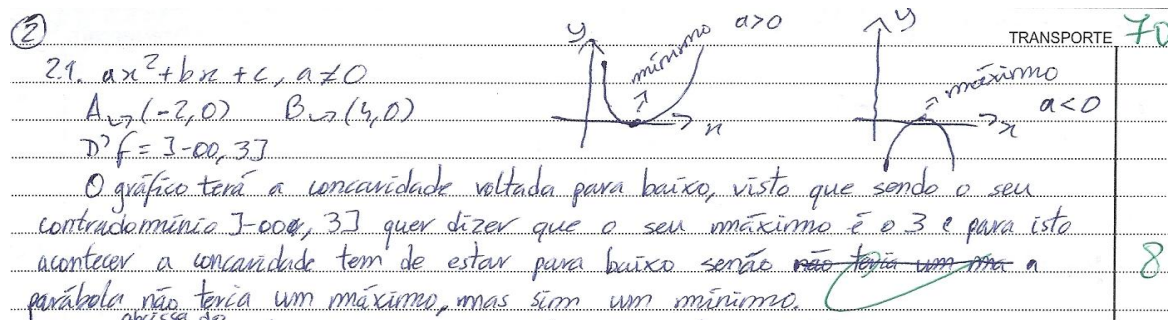 ② a>0 y TRANSPORTE 70
2.1. ax²+bx+c, a≠0 y mínimo máximo
A↪(-2,0) B↪(4,0) x x a<0
D'f = ]-∞, 3]
O gráfico terá a concavidade voltada para baixo, visto que sendo o seu
contradomínio ]-∞, 3] quer dizer que o seu máximo é o 3 e para isto
acontecer a concavidade tem de estar para baixo senão não teria um ma a 8
parábola não teria um máximo, mas sim um mínimo.
abcissa do